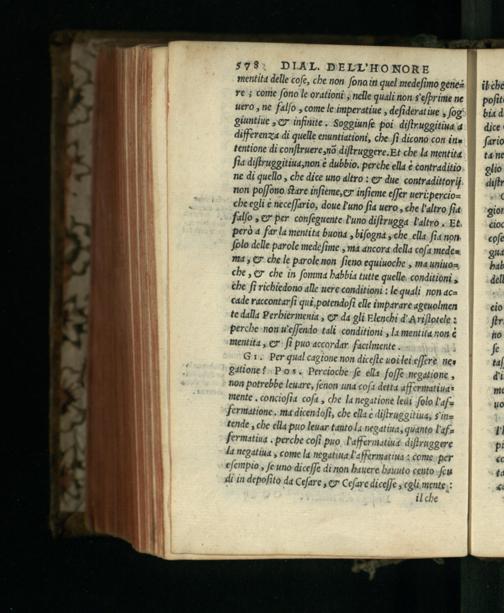 578 DIAL. DELL'HONORE
mentita delle cose, che non sono in quel medesimo gene=
re; come sono le orationi, nelle quali non s'esprime ne
uero, ne falso, come le imperatiue, desideratiue, sog=
giuntiue, & infinite. Soggiunse poi distruggitiua a
differenza di quelle enuntiationi, che si dicono con in=
tentione di construere, nō distruggere. Et che la mentita
sia distruggitiua, non è dubbio. perche ella è contraditio
ne di quello, che dice uno altro: & due contradittorij
non possono stare insieme, & insieme esser ueri: percio=
che egli è necessario, doue l'uno sia uero, che l'altro sia
falso, & per conseguente l'uno distrugga l'altro. Et
però a far la mentita buona, bisogna, che ella sia non
solo delle parole medesime, ma ancora della cosa mede=
ma, & che le parole non sieno equiuoche, ma uniuo=
che, & che in somma habbia tutte quelle conditioni,
che si richiedono alle uere conditioni: le quali non ac=
cade raccontarsi qui, potendosi elle imparare ageuolmen
te dalla Perhiermenia, & da gli Elenchi d'Aristotele:
perche non u'essendo tali conditioni, la mentita non è
mentita, & si puo accordar facilmente.
GI. Per qual cagione non diceste uoi lei essere ne=
gatione? POS. Percioche se ella fosse negatione,
non potrebbe leuare, senon una cosa detta affermatiua=
mente. conciosia cosa, che la negatione leui solo l'af=
fermatione. ma dicendosi, che ella è distruggitiua, s'in=
tende, che ella puo leuar tanto la negatiua, quanto l'af=
fermatiua. perche così puo l'affermatiua distruggere
la negatiua, come la negatiua l'affermatiua: come per
esempio, se uno dicesse di non hauere hauuto cento scu
di in deposito da Cesare, & Cesare dicesse, egli mente:
il che